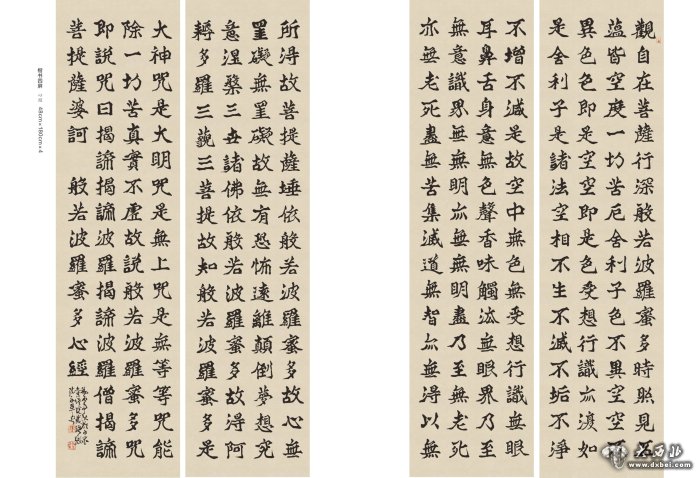 觀自在菩薩行深般若波羅蜜多時照見五
蘊皆空度一切苦厄舍利子色不異空空不
異色色即是空空即是色受想行識亦復如
是舍利子是諸法空相不生不滅不垢不淨
不增不減是故空中無色無受想行識無眼
耳鼻舌身意無色聲香味觸法無眼界乃至
無意識界無無明亦無無明盡乃至無老死
亦無老死盡無苦集滅道無智亦無得以無
所得故菩提薩埵依般若波羅蜜多故心無
罣礙無罣礙故無有恐怖遠離顛倒夢想究
竟涅槃三世諸佛依般若波羅蜜多故得阿
耨多羅三藐三菩提故知般若波羅蜜多是
大神咒是大明咒是無上咒是無等等咒能
除一切苦真實不虛故說般若波羅蜜多咒
即說咒曰揭諦揭諦波羅揭諦波羅僧揭諦
菩提薩婆訶 般若波羅蜜多心經
楷书四屏 48cm×180cm×4
大西北网
www.dxbei.com